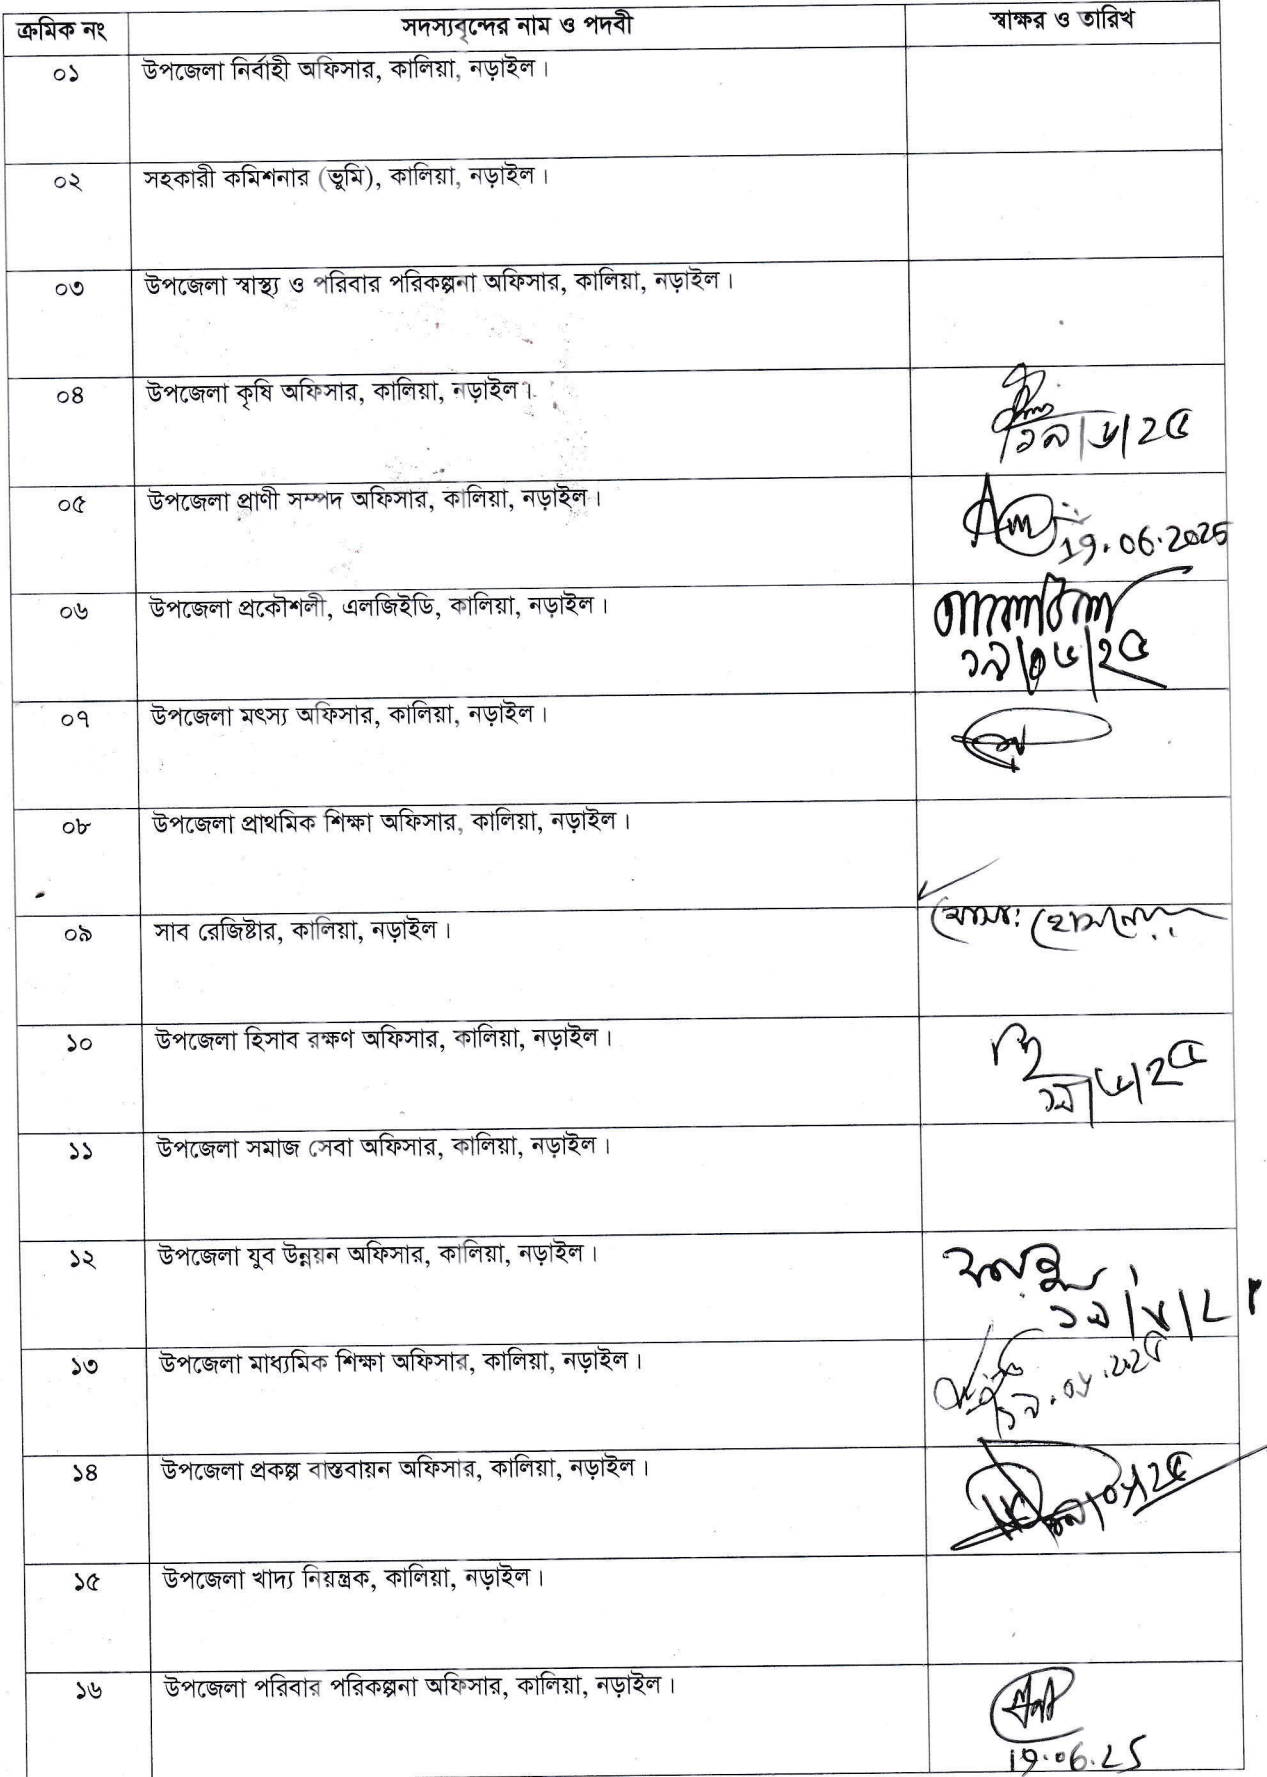 ক্রমিক নং সদস্যবৃন্দের নাম ও পদবী স্বাক্ষর ও তারিখ
০১ উপজেলা নির্বাহী অফিসার, কালিয়া, নড়াইল।
০২ সহকারী কমিশনার (ভূমি), কালিয়া, নড়াইল।
০৩ উপজেলা স্বাস্থ্য ও পরিবার পরিকল্পনা অফিসার, কালিয়া, নড়াইল।
০৪ উপজেলা কৃষি অফিসার, কালিয়া, নড়াইল।
১৯/৬/২৫
০৫ উপজেলা প্রাণী সম্পদ অফিসার, কালিয়া, নড়াইল।
19.06.2025
০৬ উপজেলা প্রকৌশলী, এলজিইডি, কালিয়া, নড়াইল।
১৯/০৬/২৫
০৭ উপজেলা মৎস্য অফিসার, কালিয়া, নড়াইল।
০৮ উপজেলা প্রাথমিক শিক্ষা অফিসার, কালিয়া, নড়াইল।
০৯ সাব রেজিষ্টার, কালিয়া, নড়াইল।
১০ উপজেলা হিসাব রক্ষণ অফিসার, কালিয়া, নড়াইল।
১৯/৬/২৫
১১ উপজেলা সমাজ সেবা অফিসার, কালিয়া, নড়াইল।
১২ উপজেলা যুব উন্নয়ন অফিসার, কালিয়া, নড়াইল।
১৩ উপজেলা মাধ্যমিক শিক্ষা অফিসার, কালিয়া, নড়াইল।
১৯.০৬.২০২৫
১৪ উপজেলা প্রকল্প বাস্তবায়ন অফিসার, কালিয়া, নড়াইল।
১৫ উপজেলা খাদ্য নিয়ন্ত্রক, কালিয়া, নড়াইল।
১৬ উপজেলা পরিবার পরিকল্পনা অফিসার, কালিয়া, নড়াইল।
19.06.25